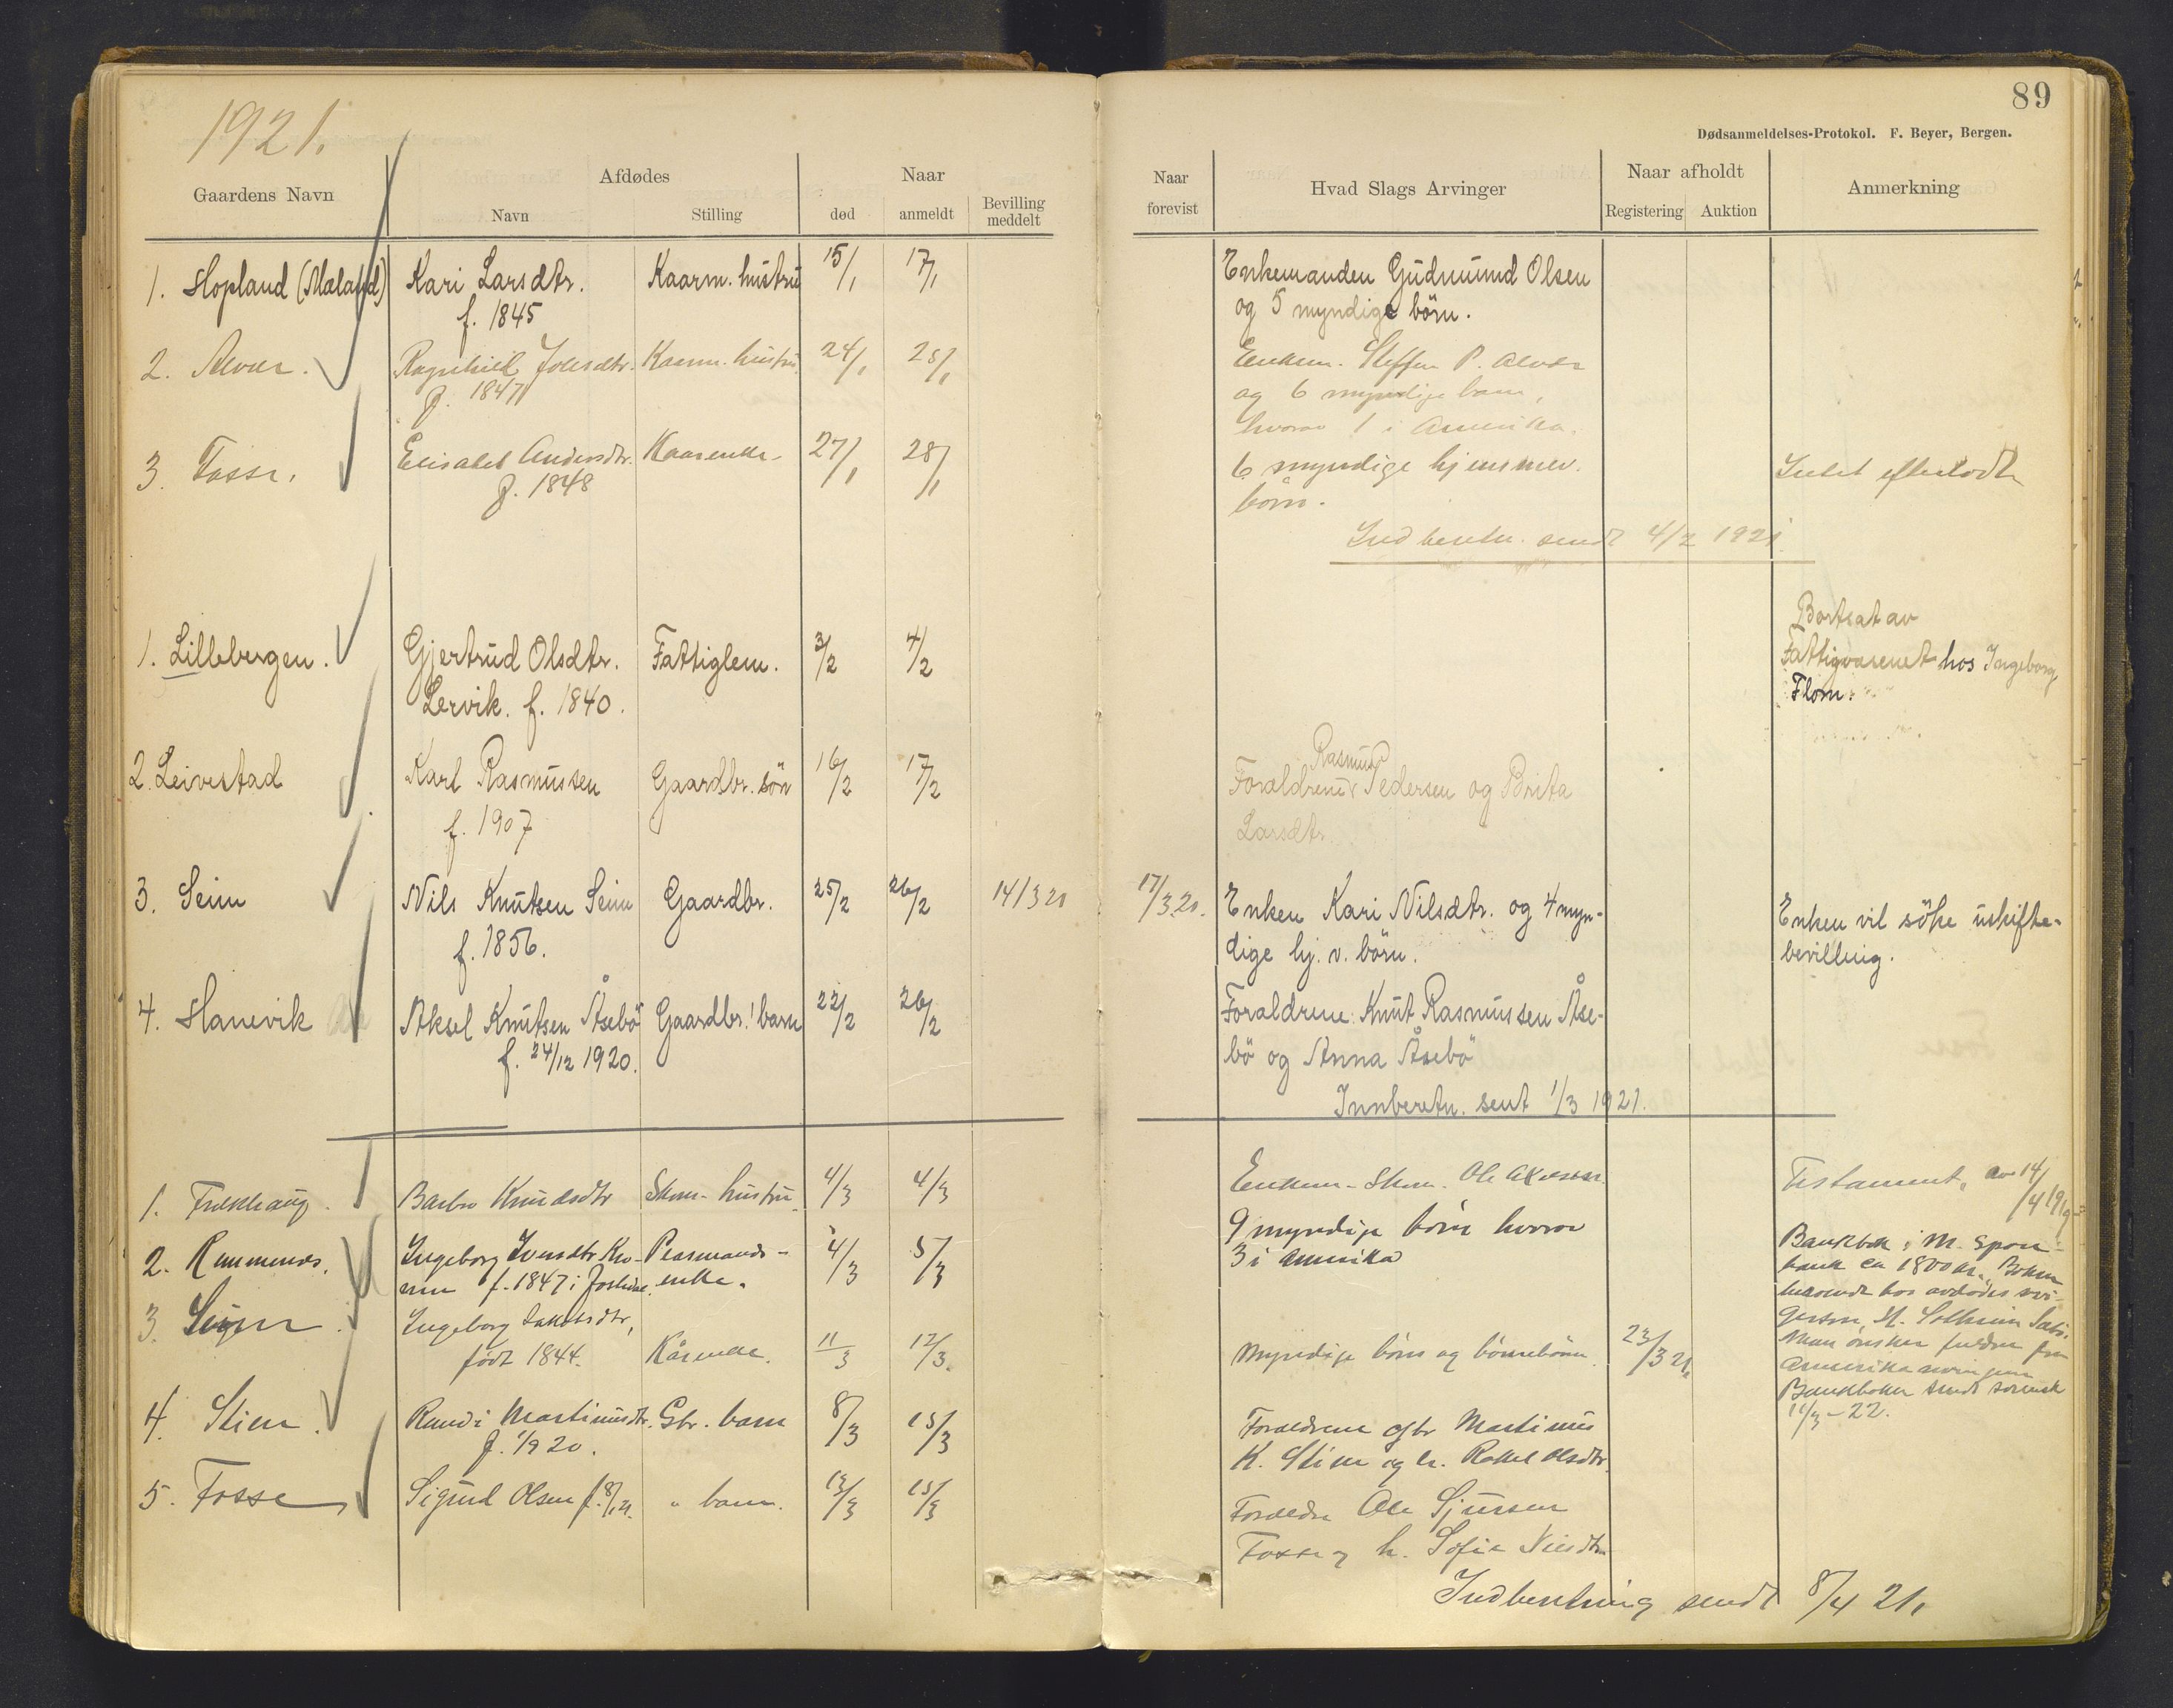 1921.
89
Dødsanmeldelses-Protokol. F. Beyer, Bergen.
Gaardens Navn
Afdødes
Navn
Stilling
Naar
død
anmeldt
Bevilling
meddelt
Naar
forevist
Hvad Slags Arvinger
Naar afholdt
Registering
Auktion
Anmerkning
1. Hopland (Mæland) Kari Larsdtr. Kaarm. hustru 15/1 17/1 Enkemanden Gudmund Olsen
f. 1845 og 5 myndige börn.
2. Alver. Ragnhild Joensdtr. Kaarm. hustru 24/1 28/1 Enkem. Steffen P. Alver
f. 1847 og 6 myndige barn,
hvorav 1 i Amerika.
3. Fosse. Elisabet Andersdtr. Kaarenke 27/1 28/1 6 myndige hjemmev. Intet efterladt
f. 1848 börn.
Indberetn. sendt 4/2 1921.
Bortsat av
1. Lillebergen. Gjertrud Olsdtr. Fattiglem. 3/2 4/2 Fattigvæsenet hos Ingeborg
Lervik. f. 1840. Flom.
Rasmus
2. Leivestad Karl Rasmussen Gaardbr. sön 16/2 17/2 Forældrene Pedersen og Brita
f. 1907 Larsdtr.
3. Seim Nils Knutsen Seim Gaardbr. 25/2 26/2 14/3 21 17/3.21. Enken Kari Nilsdtr. og 4 myn- Enken vil söke uskifte-
f. 1856. dige hj. v. börn. bevilling.
4. Hanevik Aksel Knutsen Åsebö Gaardbr. barn 22/2 26/2 Forældrene: Knut Rasmussen Åse-
f. 24/12 1920. bö og Anna Åsebö
Innberetn. sent 1/3 1921.
1. Barbro Knudsdtr hustru 4/3 4/3 Enkem. Ole Testament, av 14/4 19
9 myndige börn hvorav
3 i Amerika
2. Ingeborg enke. 4/3 5/3 Bankbok i M. Spare-
f. 1847 bank ca 1800 kr.
3. Ingeborg Jakobsdtr,
født 1844. Kårenke. 11/3 12/3. Myndige börn og börnebörn 23/3 21.
4. Stien. Randi Martinusdtr. Gbr. barn 8/3 15/3 Forældrene gbr Martinus 11/3-22.
f. 1920. K. Stien og h. Rakel Olsdtr.
5. Fosse Sigurd Olsen " barn. 15/3 Forældre Ole Sjursen
Fosse og h. Sofie Nilsdtr
Indberetning sendt 8/4 21.